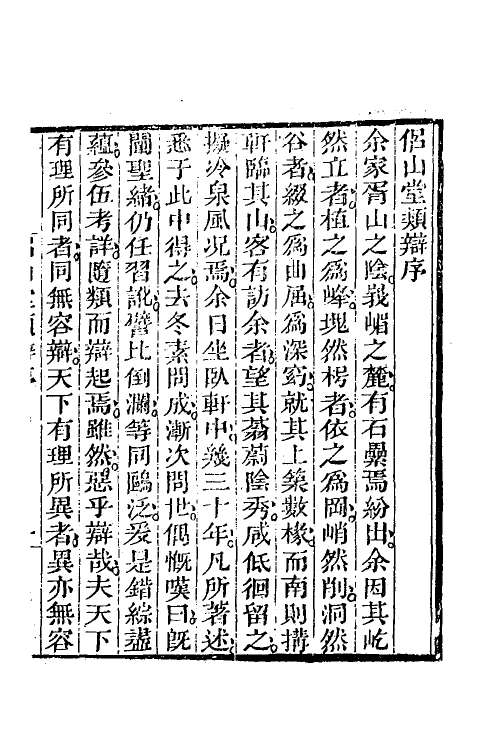 侶山堂類辯序
余家胥山之陰。峩嵋之麓。有石纍焉紛出。余因其屹
然立者。植之爲峰。塊然楞者。依之爲岡。峭然削。洞然
谷者。綴之爲曲屈。爲深窈。就其上築數椽。而南則搆
軒臨其山。客有訪余者。望其蓊蔚陰秀。咸低徊留之。
擬冷泉風况焉。余日坐臥軒中。幾三十年。凡所著述。
悉于此中得之。去冬素問成。漸次問世。偶慨嘆曰。旣
闡聖緒。仍任習訛。譬比倒瀾。等同鷗泛。爰是錯綜盡
蘊。參伍考詳。隨類而辯起焉。雖然。惡乎辯哉。夫天下
有理所同者。同無容辯。天下有理所異者。異亦無容